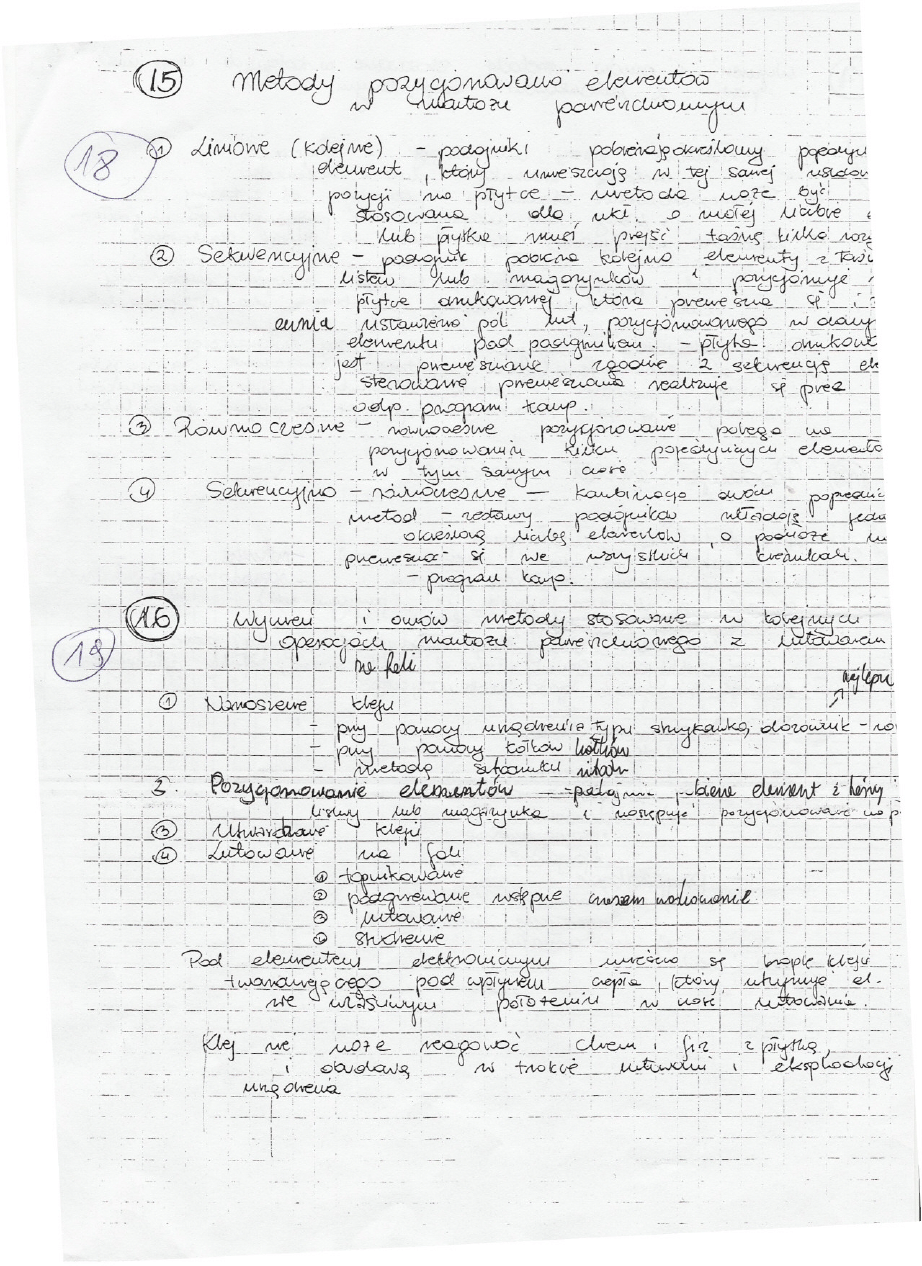 15 Metody pozycjonowania elementów
w montażu powierzchniowym
18
1 Liniowe (kolejne) - podajniki pobierają określony pojedyn
element, który umieszczają w tej samej
pozycji na płytce - metoda może być
stosowana dla ukł. o małej liczbie e
lub płytka musi przejść taśmę kilka razy
2 Sekwencyjne - podajnik pobiera kolejno elementy z taś
listew lub magazynków i pozycjonuje
płytce drukowanej, która przemieszcza się i
ustawienia pól lut, pozycjonowanego w dany
elementu pod podajnikiem. - płyta drukowa
jest przemieszczana zgodnie z sekwencją ele
sterowanie przemieszczania realizuje się przez
odp. program komp.
3 Równoczesne - równoczesne pozycjonowanie polega na
pozycjonowaniu kilku pojedynczych elementó
w tym samym czasie
4 Sekwencyjno - równoczesne - kombinacja dwóch poprzednic
metod - zestawy podajników układają jedn
określoną liczbę elementów, a podłoże
przemieszcza się we wszystkich kierunkach.
- program komp.
16 Wymień i omów metody stosowane w kolejnych
operacjach montażu powierzchniowego z lutowaniem
19
na fali
najlepsze
1 Nanoszenie kleju
- przy pomocy urządzenia typu strzykawka, dozownik -
- przy pomocy kołków kołków
- metodą sitodruku
2. Pozycjonowanie elementów - element z
listwy lub magazynka i następuje pozycjonowanie na p
3 Utwardzanie kleju
4 Lutowanie na fali
1 topnikowanie
2 podgrzewanie wstępne
3 lutowanie
4 studzenie
Pod elementem elektronicznym umieszcza się kroplę kleju
twardniejącego pod wpływem ciepła, który utrzymuje el.
we właściwym położeniu w czasie lutowania.
Klej nie może reagować chem i fiz z płytką,
i obudową w trakcie lutowania i eksploatacji
urządzenia